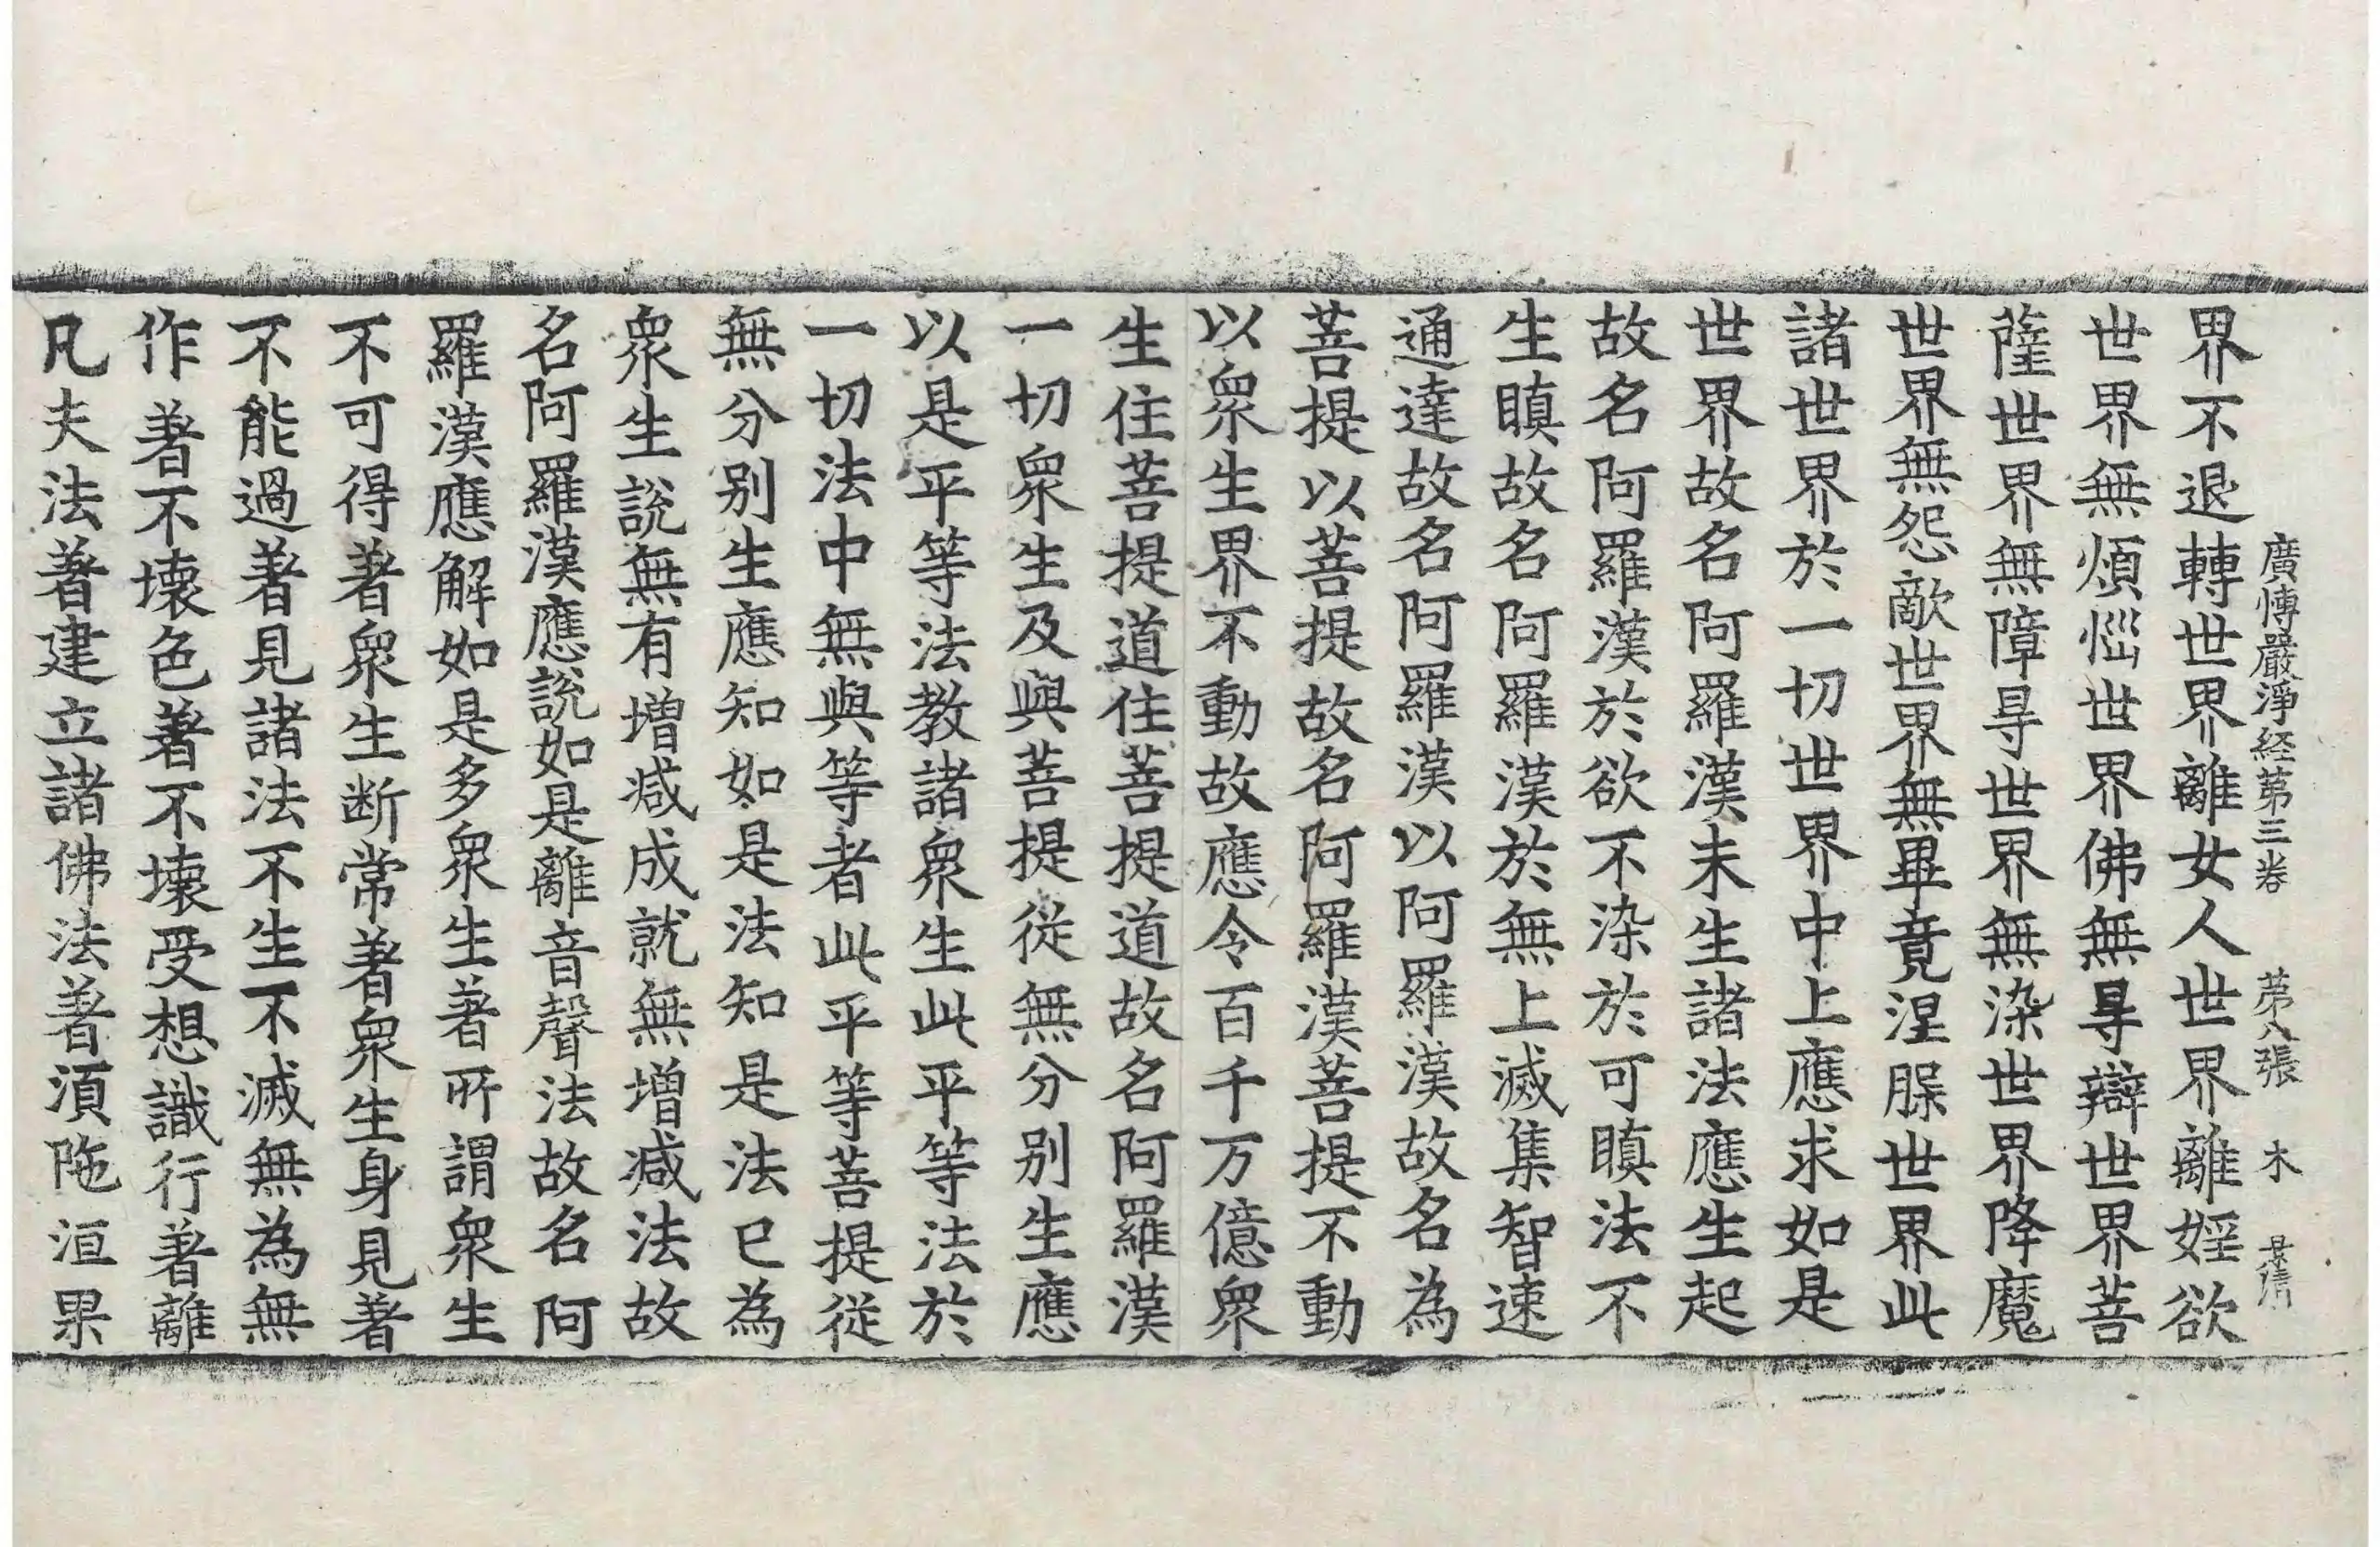 廣博嚴淨経第三卷 第八張 木 景清
界不退轉世界離女人世界離婬欲
世界無煩惱世界佛無㝵辯世界菩
薩世界無障㝵世界無染世界降魔
世界無怨敵世界無畢竟涅槃世界此
諸世界於一切世界中上應求如是
世界故名阿羅漢未生諸法應生起
故名阿羅漢於欲不染於可瞋法不
生瞋故名阿羅漢於無上滅集智速
通達故名阿羅漢以阿羅漢故名為
菩提以菩提故名阿羅漢菩提不動
以衆生界不動故應令百千万億衆
生住菩提道住菩提道故名阿羅漢
一切衆生及與菩提從無分别生應
以是平等法教諸衆生此平等法於
一切法中無與等者此平等菩提從
無分别生應知如是法知是法已為
衆生說無有增减成就無增减法故
名阿羅漢應說如是離音聲法故名阿
羅漢應解如是多衆生著所謂衆生
不可得著衆生断常著衆生身見著
不能過著見諸法不生不滅無為無
作著不壞色著不壞受想識行著離
凡夫法著建立諸佛法著湏陁洹果